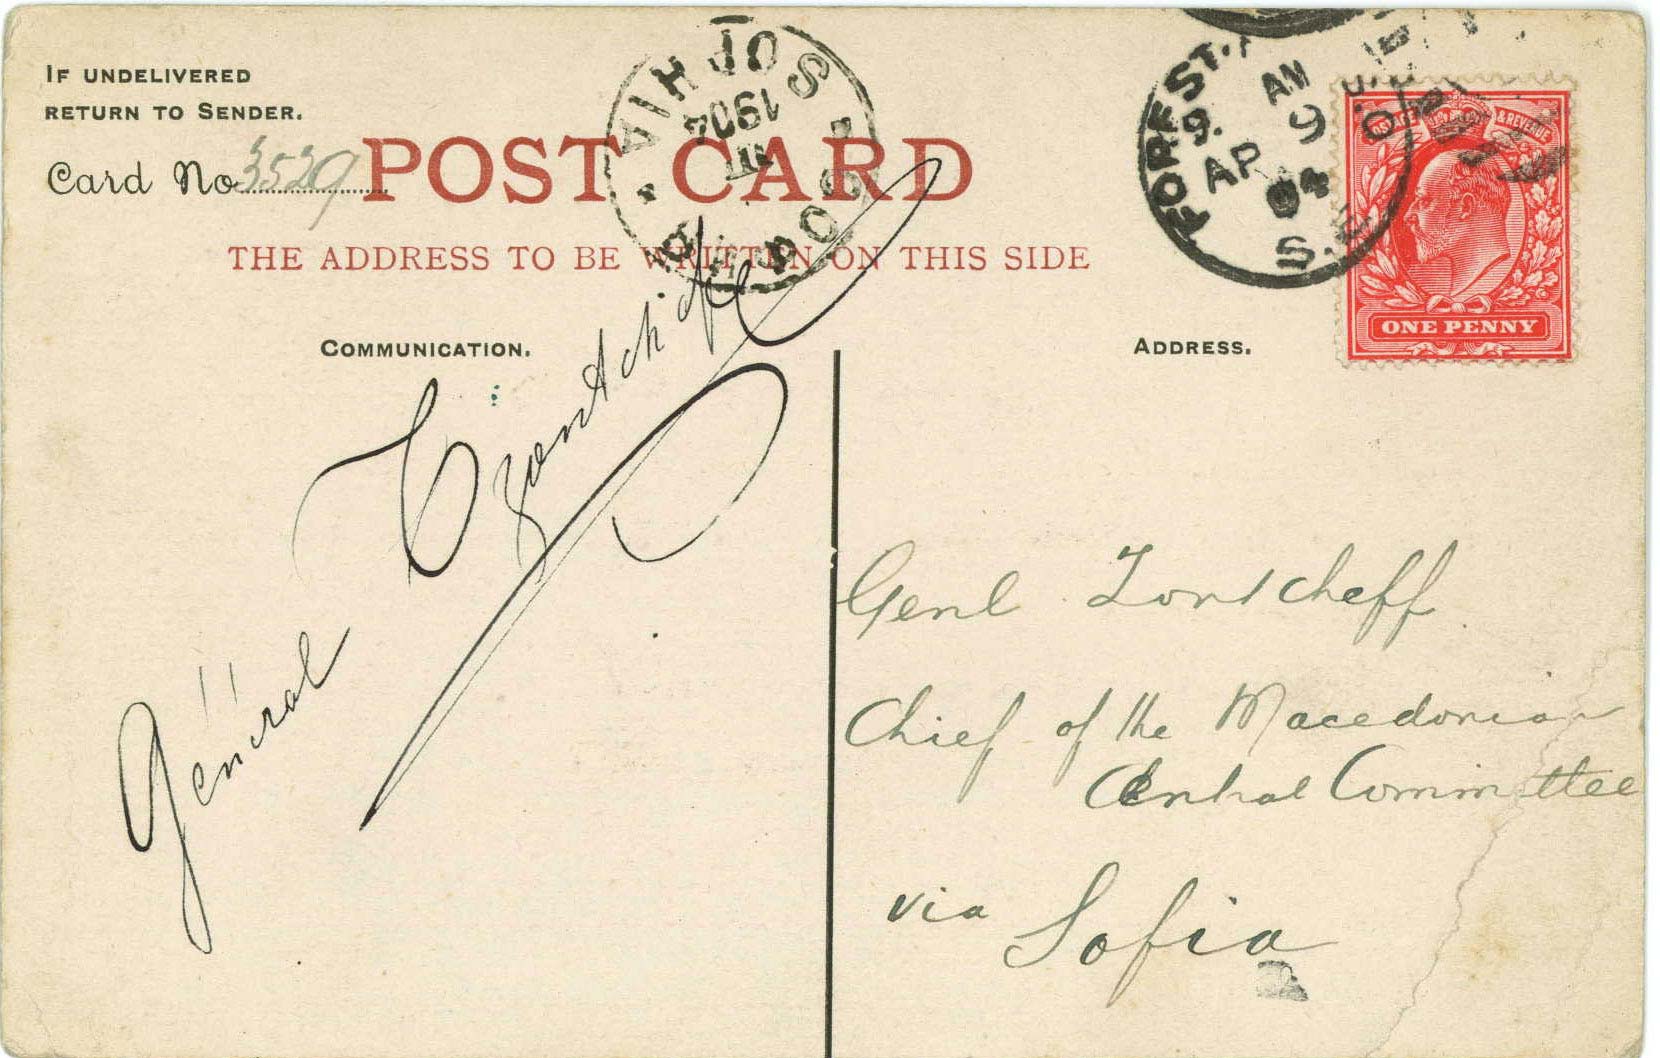 IF UNDELIVERED
RETURN TO SENDER.
Card No 3529
POST CARD
THE ADDRESS TO BE WRITTEN ON THIS SIDE
COMMUNICATION.
ADDRESS.
SOPHIA
1904
FOREST
AM
9.
9
AP
04
S.O.
S.E.
POSTAGE & REVENUE
ONE PENNY
Général
Genl Zontcheff
Chief of the Macedonian
Central Committee
via
Sofia